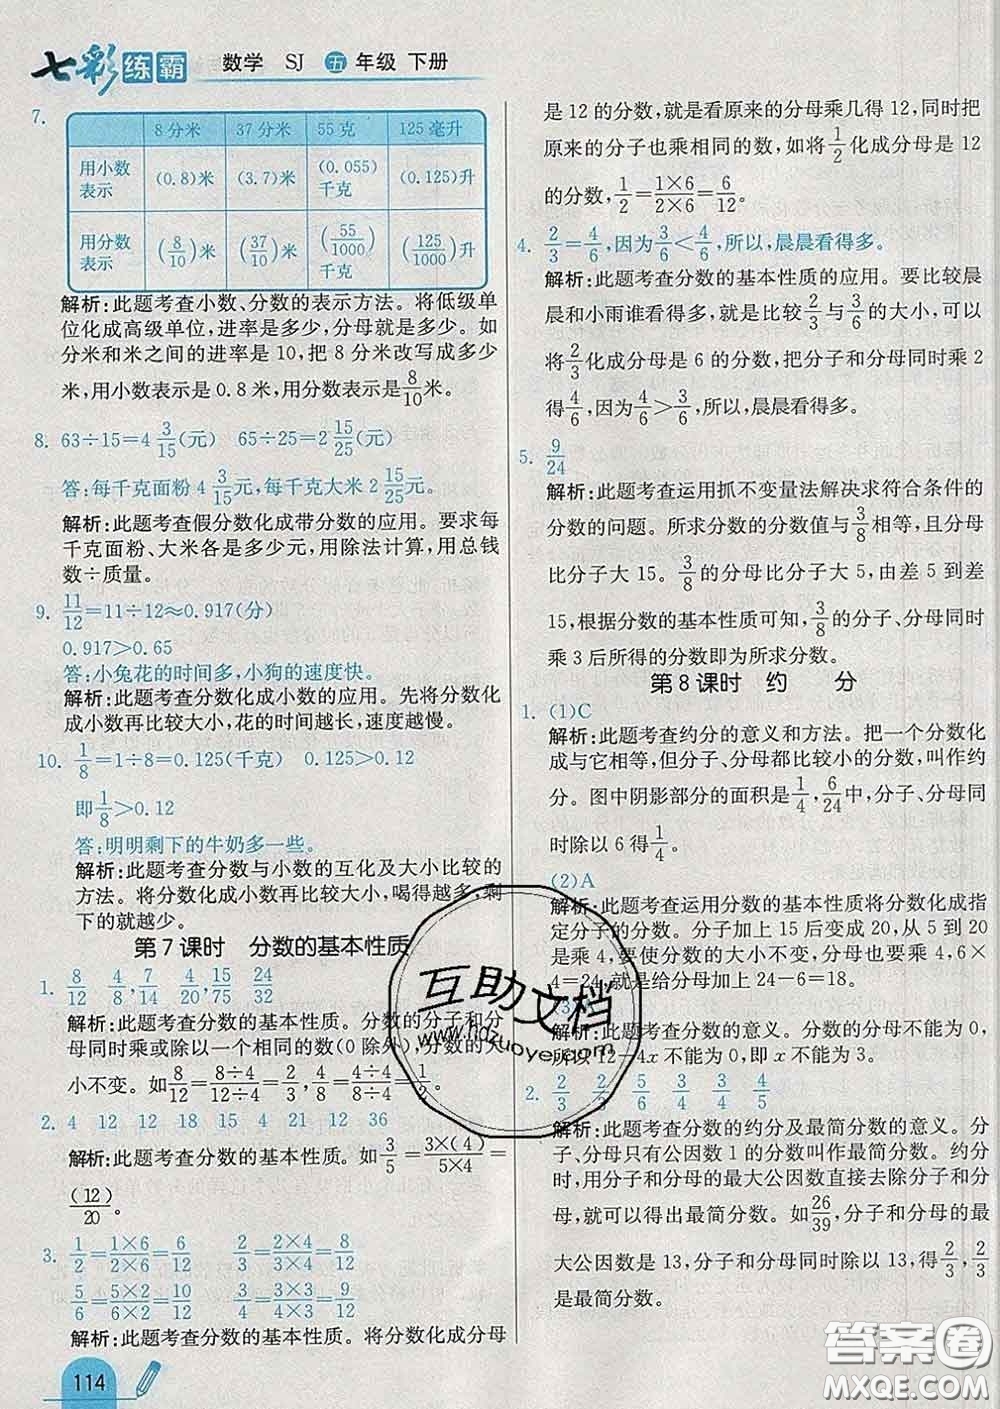 七彩练霸 数学 SJ 五年级 下册
7.
8分米 37分米 55克 125毫升
用小数表示 (0.8)米 (3.7)米 (0.055)千克 (0.125)升
用分数表示 (8/10)米 (37/10)米 (55/1000)千克 (125/1000)升
解析:此题考查小数、分数的表示方法。将低级单
位化成高级单位,进率是多少,分母就是多少。如
分米和米之间的进率是10,把8分米改写成多少
米,用小数表示是0.8米,用分数表示是8/10米。
8. 63÷15=4 3/15(元) 65÷25=2 15/25(元)
答:每千克面粉4 3/15元,每千克大米2 15/25元。
解析:此题考查假分数化成带分数的应用。要求每
千克面粉、大米各是多少元,用除法计算,用总钱
数÷质量。
9. 11/12=11÷12≈0.917(分)
0.917>0.65
答:小兔花的时间多,小狗的速度快。
解析:此题考查分数化成小数的应用。先将分数化
成小数再比较大小,花的时间越长,速度越慢。
10. 1/8=1÷8=0.125(千克) 0.125>0.12
即1/8>0.12
答:明明剩下的牛奶多一些。
解析:此题考查分数与小数的互化及大小比较的
方法。将分数化成小数再比较大小,喝得越多,剩
下的就越少。
第7课时 分数的基本性质
1. 8/12 4/8,7/14 4/20,15/75 24/32
解析:此题考查分数的基本性质。分数的分子和分
母同时乘或除以一个相同的数(0除外),分数的大
小不变。如8/12=8÷4/12÷4=2/3,4/8=4÷4/8÷4=1/2。
2. 4 12 12 18 15 4 21 30 1
解析:此题考查分数的基本性质。如3/5=3×(4)/5×4=
(12)/20。
3. 1/2=1×6/2×6=6/12 2/3=2×4/3×4=8/12
5/6=5×2/6×2=10/12 3/4=3×3/4×3=9/12
解析:此题考查分数的基本性质。将分数化成分母
114
是12的分数,就是看原来的分母乘几得12,同时把
原来的分子也乘相同的数,如将1/2化成分母是12
的分数,1/2=1×6/2×6=6/12。
4. 2/3=4/6,因为3/6<4/6,所以,晨晨看得多。
解析:此题考查分数的基本性质的应用。要比较晨
晨和小雨谁看得多,就是比较2/3与3/6的大小,可以
将2/3化成分母是6的分数,把分子和分母同时乘2
得4/6,因为4/6>3/6,所以,晨晨看得多。
5. 9/24
解析:此题考查运用抓不变量法解决求符合条件的
分数的问题。所求分数的分数值与3/8相等,且分母
比分子大15。3/8的分母比分子大5,由差5到差
15,根据分数的基本性质可知,3/8的分子、分母同时
乘3后所得的分数即为所求分数。
第8课时 约 分
1. (1)C
解析:此题考查约分的意义和方法。把一个分数化
成与它相等,但分子、分母都比较小的分数,叫作约
分。图中阴影部分的面积是1/4,6/24,分子、分母同
时除以6得1/4。
(2)A
解析:此题考查运用分数的基本性质将分数化成指
定分子的分数。分子加上15后变成20,从5到20
是乘4,要使分数的大小不变,分母也要乘4,6×
4=24,就是给分母加上24-6=18。
解析:此题考查分数的意义。分数的分母不能为0,
所以12-4x不能为0,即x不能为3。
2. 2/3 2/3 5/6 3/4 4/5
解析:此题考查分数的约分及最简分数的意义。分
子、分母只有公因数1的分数叫作最简分数。约分
时,用分子和分母的最大公因数直接去除分子和分
母,就可以得出最简分数。如26/39,分子和分母的最
大公因数是13,分子和分母同时除以13,得2/3,2/3
是最简分数。
互助文档
www.hdzuoye.com
答案圈
MXQE.COM